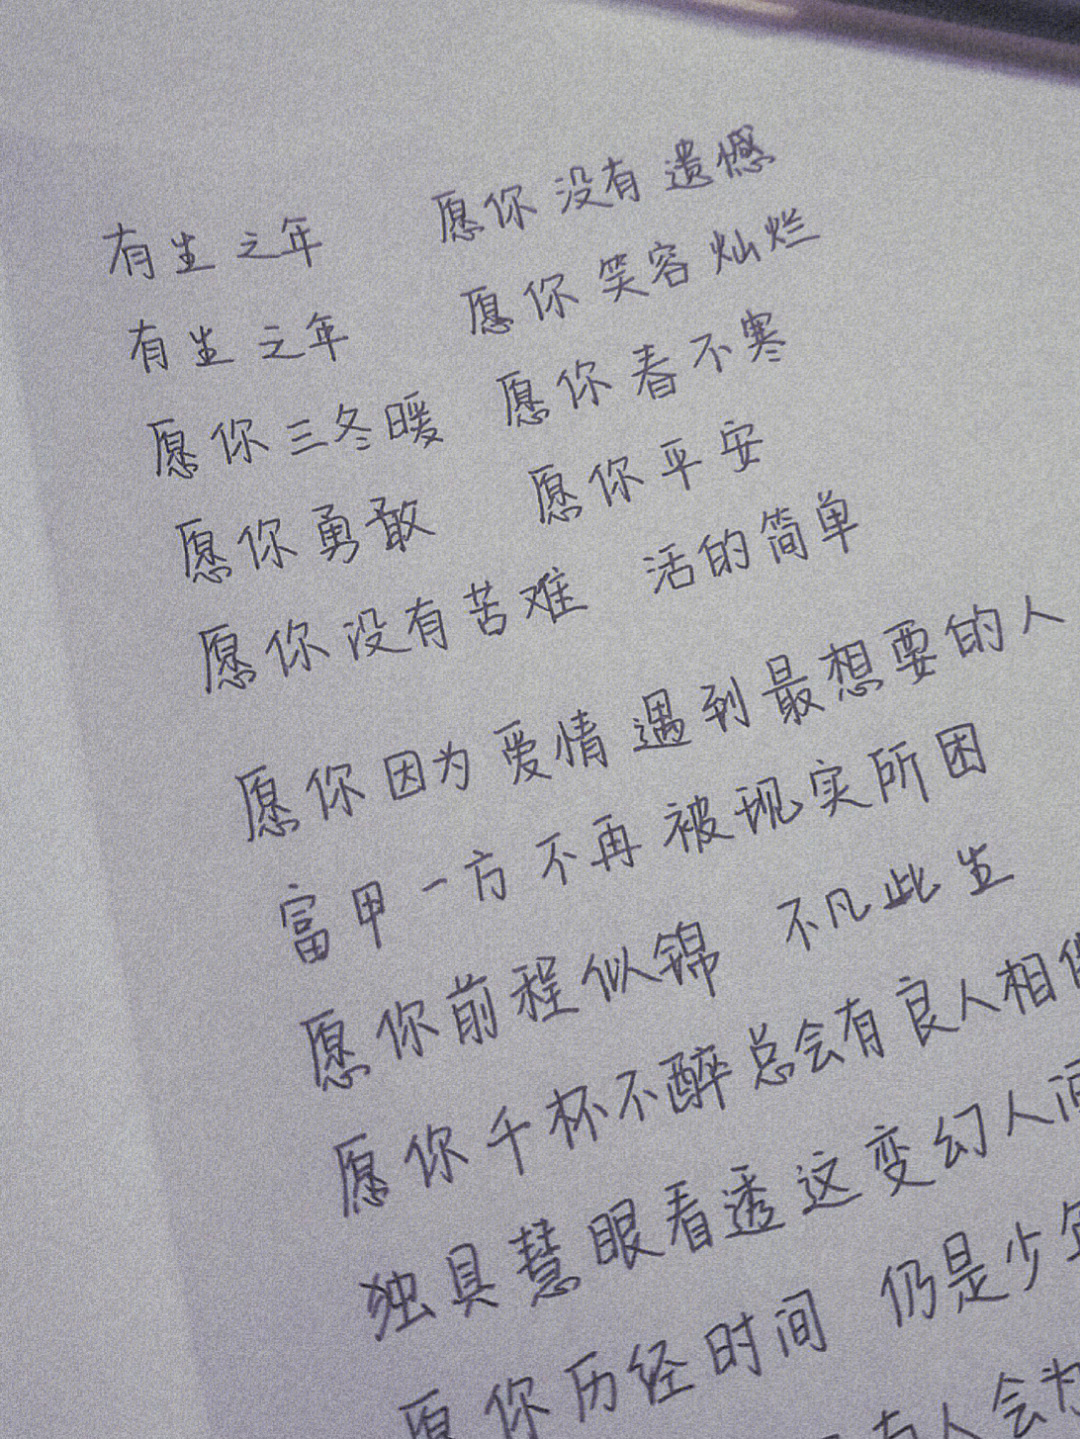 有生之年 愿你没有遗憾
有生之年 愿你笑容灿烂
愿你三冬暖 愿你春不寒
愿你勇敢 愿你平安
愿你没有苦难 活的简单
愿你因为爱情遇到最想要的人
富甲一方不再被现实所困
愿你前程似锦 不凡此生
愿你千杯不醉总会有良人相伴
独具慧眼看透这变幻人间
愿你历经时间 仍是少年
有人会为